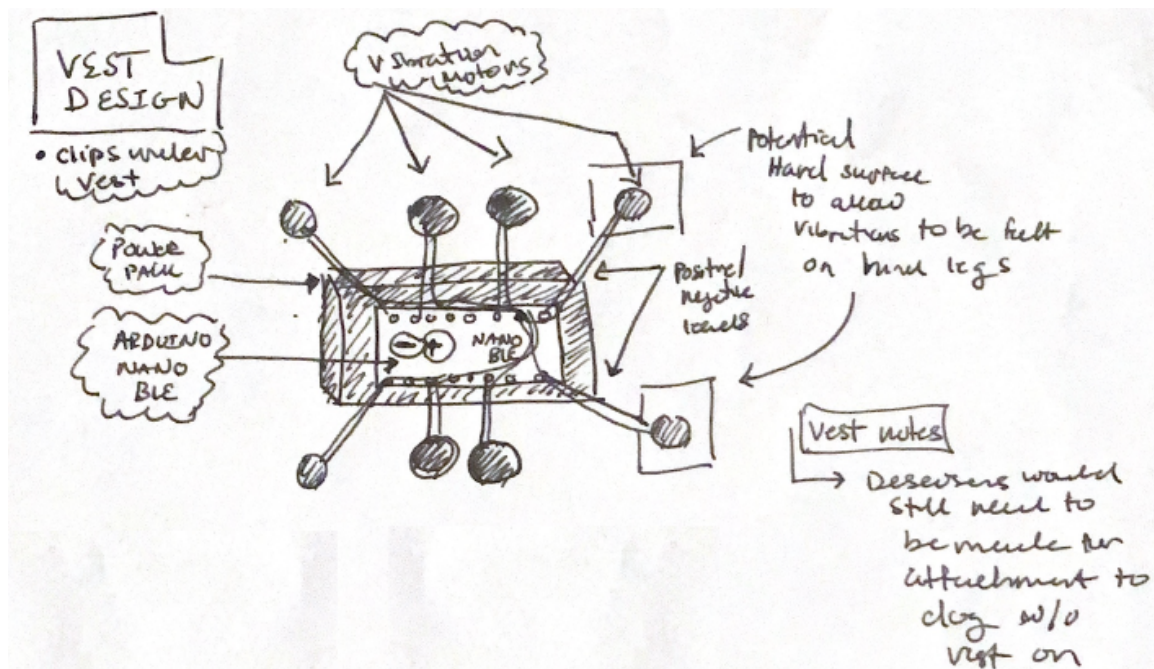 VEST
DESIGN
• clips under
vest
Vibration
Motors
POWER
PACK
ARDUINO
NANO
BLE
NANO
BLE
- +
Potential
Hard surface
to allow
vibrations to be felt
on hind legs
Positive/
negative
Vest notes
would
still need to
be made for
attachment to
dog w/o
vest on